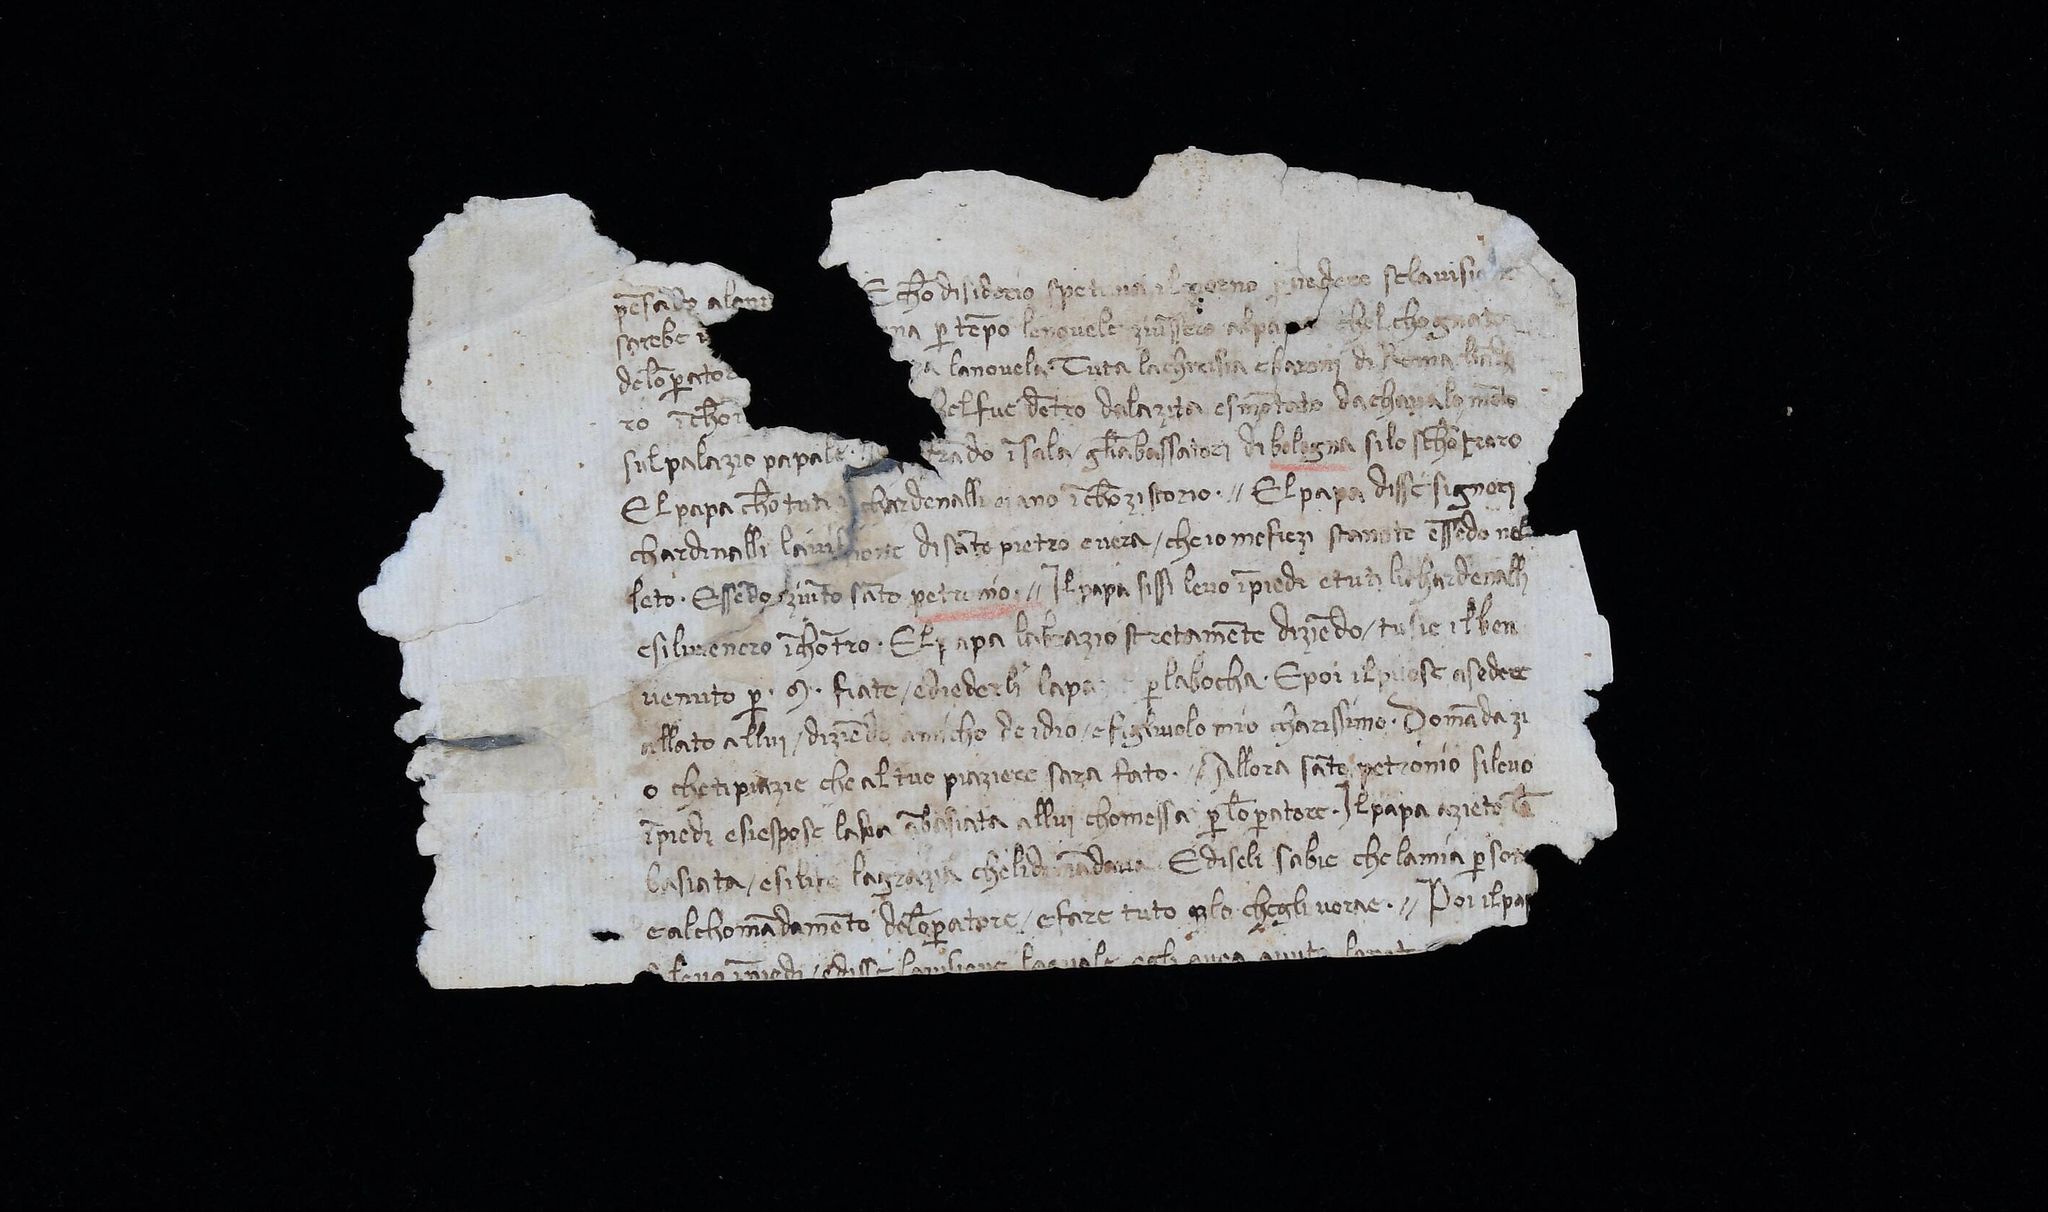 pēsado E chō disiderio spetava il zorno p vedere se la visio
sarebe na p tēpo le novele zunssero al papa chel chognato
de lōpatore la novela Tuta la chiresia e baroni di Roma
ro īchō chel fue dētro da la zita e smōtato da chavalo
sul palazio papale. // trādo ī sala / gli ābassatori di bologna si lo schōtraro
El papa chō tuti i chardenalli erano ī chōzistorio. // El papa disse signori
chardinalli la visione di sāto pietro e vera / che io me fiezi stanote essēdo nel
leto. Essēdo zunto sāto petronio. // Il papa sissi levo ī piedi e tuti li chardenalli
e si li venero īchōtro. El papa l abrazio stretamēte diziēdo / tu sie il ben
venuto p. m. fiate / e diederli la paze p la bocha. E poi il puose a sedere
allato a llui / diziēdo amicho de idio / e figlivolo mio charissimo. Domāda zi
o che ti piazie che al tuo piaziere sara fato. // Allora sāto petronio si levo
ī piedi e si espose la sua ābasiata a llui chomessa p lōpatore. Il papa azieto lā
basiata / e la grazia che li domādava. E diseli sabie che la mia psona
e al chomādamēto de lōpatore / e fare tuto zo che gli vorae. // Poi il papa
levo ī piedi / e disse la visione la quale egli avea avuta